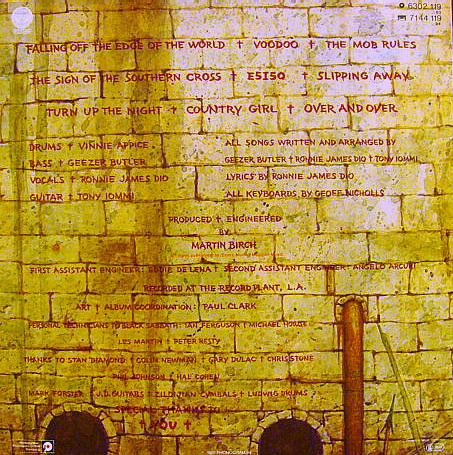 6302 119
7144 119
FALLING OFF THE EDGE OF THE WORLD † VOODOO † THE MOB RULES
THE SIGN OF THE SOUTHERN CROSS † E5150 † SLIPPING AWAY
TURN UP THE NIGHT † COUNTRY GIRL † OVER AND OVER
DRUMS † VINNIE APPICE
BASS † GEEZER BUTLER
VOCALS † RONNIE JAMES DIO
GUITAR † TONY IOMMI
ALL SONGS WRITTEN AND ARRANGED BY
GEEZER BUTLER † RONNIE JAMES DIO † TONY IOMMI
LYRICS BY RONNIE JAMES DIO
ALL KEYBOARDS BY GEOFF NICHOLLS
PRODUCED † ENGINEERED
BY
MARTIN BIRCH
FIRST ASSISTANT ENGINEER: EDDIE DE LENA † SECOND ASSISTANT ENGINEER: ANGELO ARCURI
RECORDED AT THE RECORD PLANT, L.A.
ART † ALBUM COORDINATION: PAUL CLARK
PERSONAL TECHNICIANS TO BLACK SABBATH: IAN FERGUSON † MICHAEL HOWSE
LES MARTIN † PETER RESTY
THANKS TO STAN DIAMOND † COLIN NEWMAN † GARY DULAC † CHRIS STONE
PHIL JOHNSON † HAL COHEN
MARK FORSTER † J.D. GUITARS † ZILDJIAN CYMBALS † LUDWIG DRUMS
SPECIAL THANKS TO
† YOU †